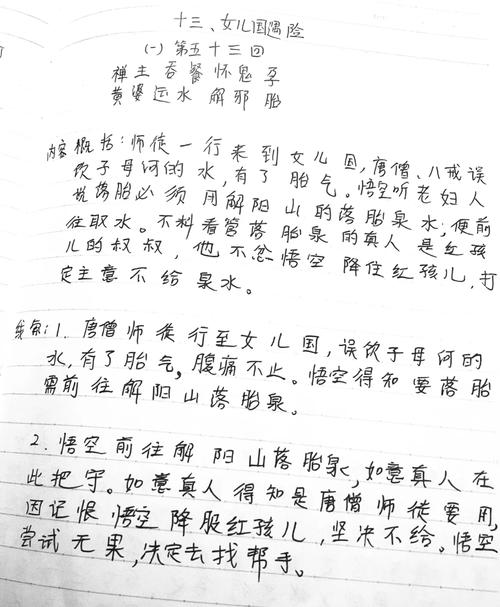 十三、女儿国遇险
(一) 第五十三回
禅主吞餐怀鬼孕
黄婆运水解邪胎
内容概括:师徒一行来到女儿国,唐僧、八戒误
饮子母河的水,有了胎气。悟空听老妇人
说落胎必须用解阳山的落胎泉水,便前
往取水。不料看管落胎泉的真人是红孩
儿的叔叔,他不忿悟空降住红孩儿,打
定主意不给泉水。
线索:1. 唐僧师徒行至女儿国,误饮子母河的
水,有了胎气,腹痛不止。悟空得知要落胎
需前往解阳山落胎泉。
2. 悟空前往解阳山落胎泉,如意真人在
此把守。如意真人得知是唐僧师徒要用,
因记恨悟空降服红孩儿,坚决不给。悟空
尝试无果,决定去找帮手。